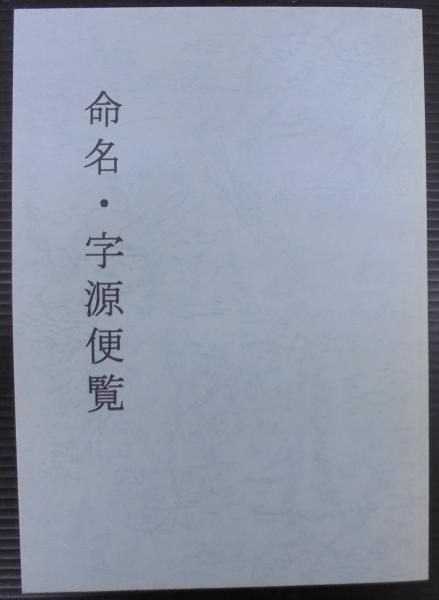 命名・字源便覧